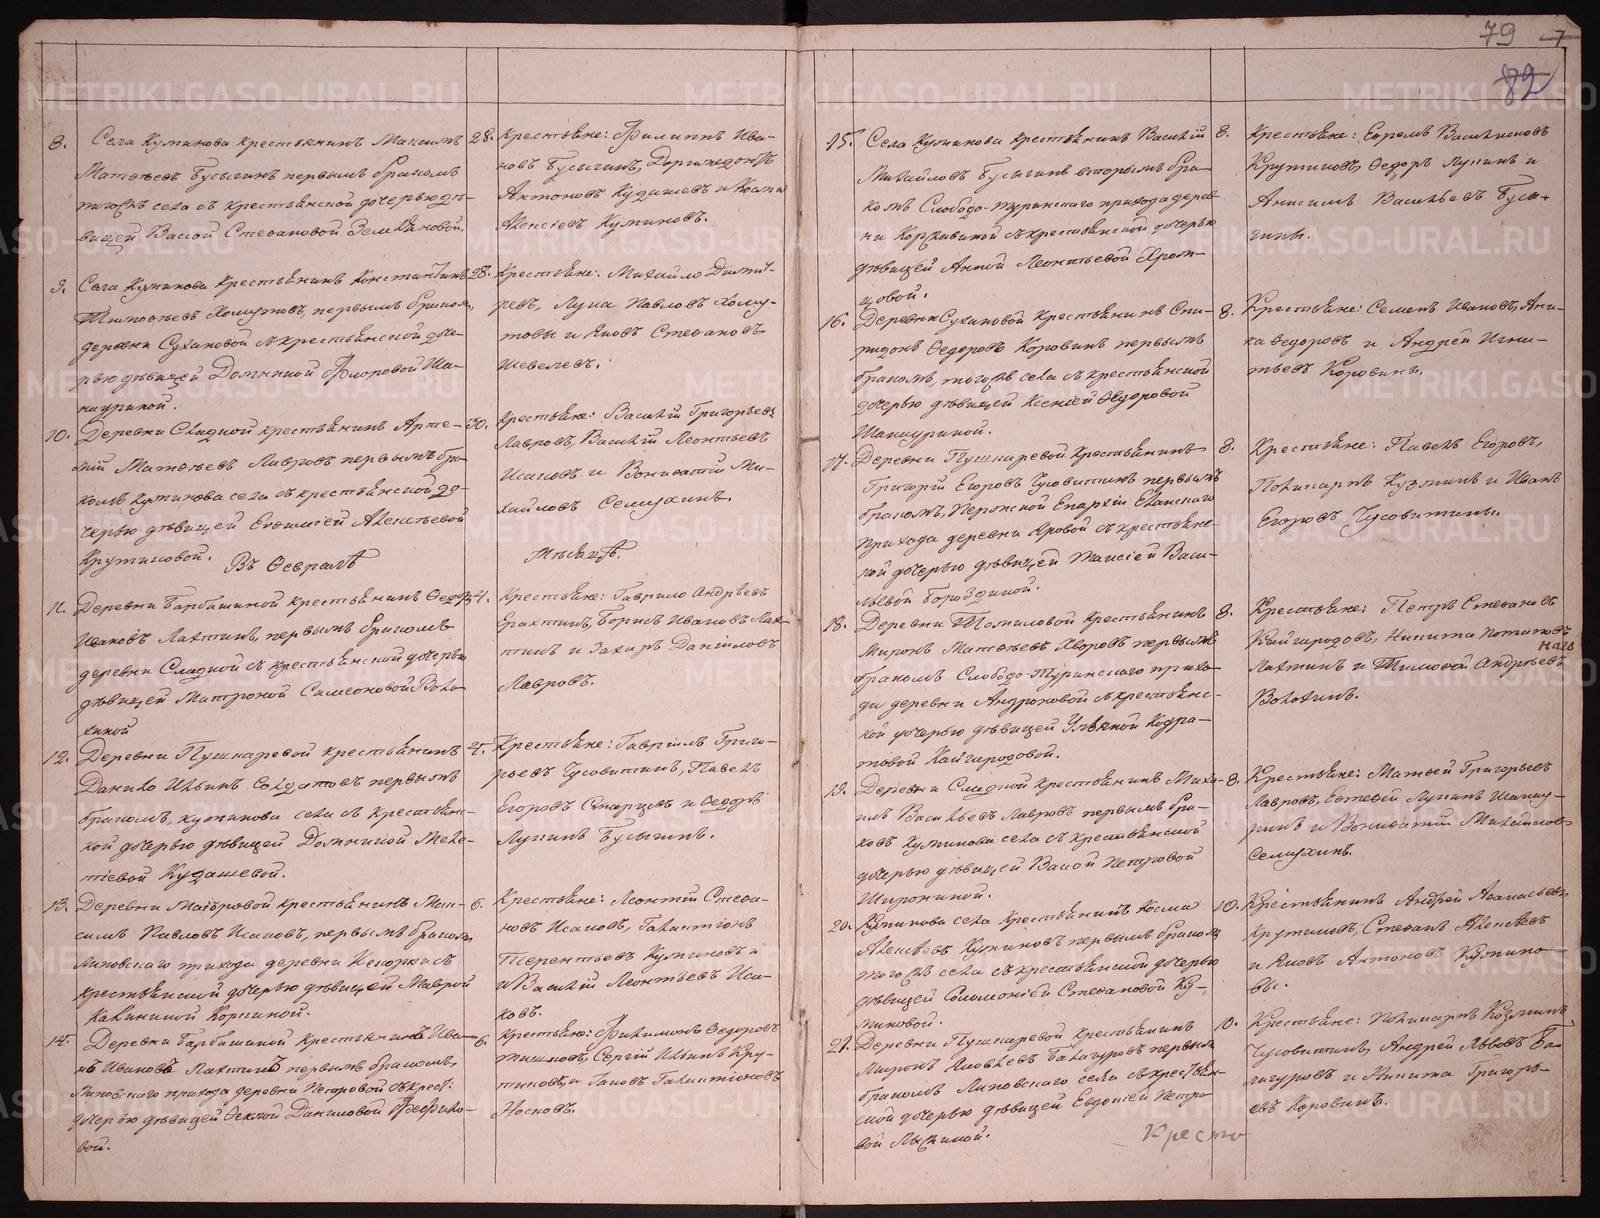 79
82
8. Села Куминова крестьянинъ Максимъ
Матвѣевъ Бусыгинъ первымъ бракомъ
тогожъ села съ крестьянской дочерью дѣ-
вицей Вассой Стефановой Земляновой.
28. Крестьяне: Филиппъ Ива-
новъ Бусыгинъ, Доримедонтъ
Антоновъ Кудашевъ и Косма
Алексѣевъ Куминовъ.
9. Села Куминова крестьянинъ Константинъ
Тимофѣевъ Хомутовъ, первымъ бракомъ,
деревни Сухановой съ крестьянской доче-
рью дѣвицей Домникой Флоровой Ша-
науриной.
28. Крестьяне: Михайло Дмиті-
ревъ, Лука Павловъ Хому-
товы и Яковъ Стефановъ
Шевелевъ.
10. Деревни Сладкой крестьянинъ Арте-
мій Матвѣевъ Лавровъ первымъ бра-
комъ Куминова села съ крестьянской до-
черью дѣвицей Евфиміей Алексѣевой
Крутиковой.
30. Крестьяне: Василій Григорьевъ
Лавровъ, Василій Леонтьевъ
Исаковъ и Вонифатій Ми-
хайловъ Семухинъ.
Въ Февралѣ
Мѣсяцѣ.
11. Деревни Барбашиной крестьянинъ Ѳедоръ
Ивановъ Лахтинъ, первымъ бракомъ
деревни Сладкой съ крестьянской дочерью
дѣвицей Матроной Симеоновой Воло-
хиной
4. Крестьяне: Гаврило Андрѣевъ
Ерахтинъ, Борисъ Ивановъ Лах-
тинъ и Захаръ Даніиловъ
Лавровъ.
12. Деревни Пушкаревой крестьянинъ
Данило Ильинъ Солдатовъ первымъ
бракомъ, Куминова села съ крестьянс-
кой дочерью дѣвицей Домникой Меле-
тіевой Кудашевой.
4. Крестьяне: Гавріилъ Григо-
рьевъ Чусовитинъ, Павелъ
Егоровъ Старцовъ и Ѳедоръ
Лупинъ Бусыгинъ.
13. Деревни Маіоровой крестьянинъ Мак-
симъ Павловъ Исаковъ, первымъ бракомъ
Липовскаго прихода деревни съ
крестьянской дочерью дѣвицей Маврой
Калининой Коркиной.
6. Крестьяне: Леонтій Стефа-
новъ Исаковъ, Галактіонъ
Терентьевъ Куминовъ и
Василій Леонтьевъ Иса-
ковъ.
14. Деревни Барбашиной крестьянинъ Ива-
нъ Ивановъ Лахтинъ первымъ бракомъ,
Липовскаго прихода деревни Петровой съ крест:
дочерью дѣвицей Ѳеклой Даниловой
вой.
6. Крестьяне: Филимонъ Ѳедоровъ
Сергій Ильинъ Кру-
тиковъ, и Іаковъ Галактіоновъ
Носковъ.
15. Села Куминова крестьянинъ Василій
Михайловъ Бусыгинъ вторымъ бра-
комъ Слободо-Туринскаго прихода дерев-
ни Коржавиной съ крестьянской дочерью
дѣвицей Анной Леонтьевой Хром-
цовой.
8. Крестьяне: Ефремъ Васильевъ
Крутиковъ, Ѳедоръ Лупинъ и
Анисимъ Васильевъ Бусы-
гины.
16. Деревни Сухановой крестьянинъ Спи-
ридонъ Ѳедоровъ Коровинъ первымъ
бракомъ, тогожъ села съ крестьянской
дочерью дѣвицей Ксеніей Ѳедоровой
Шанауриной.
8. Крестьяне: Семенъ Ивановъ, Ани-
ка Ѳедоровъ и Андрей Игна-
тьевъ Коровинъ.
17. Деревни Пушкаревой крестьянинъ
Григорій Егоровъ Чусовитинъ первымъ
бракомъ, Пермской Епархіи Еланскаго
прихода деревни Яровой съ крестьянс-
кой дочерью дѣвицей Таисіей Васи-
льевой Бороздиной.
8. Крестьяне: Павелъ Егоровъ,
Поликарпъ Кузминъ и Иванъ
Егоровъ Чусовитинъ.
18. Деревни Томиловой крестьянинъ
Миронъ Матвѣевъ Хворовъ первымъ
бракомъ Слободо-Туринскаго прихо-
да деревни Андроновой съ крестьянс-
кой дочерью дѣвицей Ульяной Кодра-
товой Кайгородовой.
8. Крестьяне: Петръ Стефановъ
Кайгородовъ, Никита
Лахтинъ и Тимофей Андрѣевъ
Волохинъ.
19. Деревни Сладкой крестьянинъ Миха-
илъ Васильевъ Лавровъ первымъ бра-
комъ Куминова села съ крестьянской
дочерью дѣвицей Вассой Петровой
Широкиной.
8. Крестьяне: Матвей Григорьевъ
Лавровъ, Евтефей Лупинъ Шанау-
ринъ и Вонифатій Михайловъ
Семухинъ.
20. Куминова села крестьянинъ Косма
Алексѣевъ Куминовъ первымъ бракомъ
тогожъ села съ крестьянской дочерью
дѣвицей Соломоніей Стефановой Ку-
миновой.
10. Крестьянинъ Андрей Афанасьевъ
Крутиковъ, Стефанъ Алексѣевъ
и Яковъ Антоновъ Кумино-
вы.
21. Деревни Пушкаревой крестьянинъ
Миронъ Яковлевъ Балагуровъ первымъ
бракомъ Липовскаго села съ крестьян-
ской дочерью дѣвицей Евдокіей Петро-
вой Лыскиной.
10. Крестьяне: Поликарпъ Козминъ
Чусовитинъ, Андрей Львовъ Ба-
лагуровъ и Никита Григорь-
евъ Коровинъ.
Кресто
METRIKI.GASO-URAL.RU